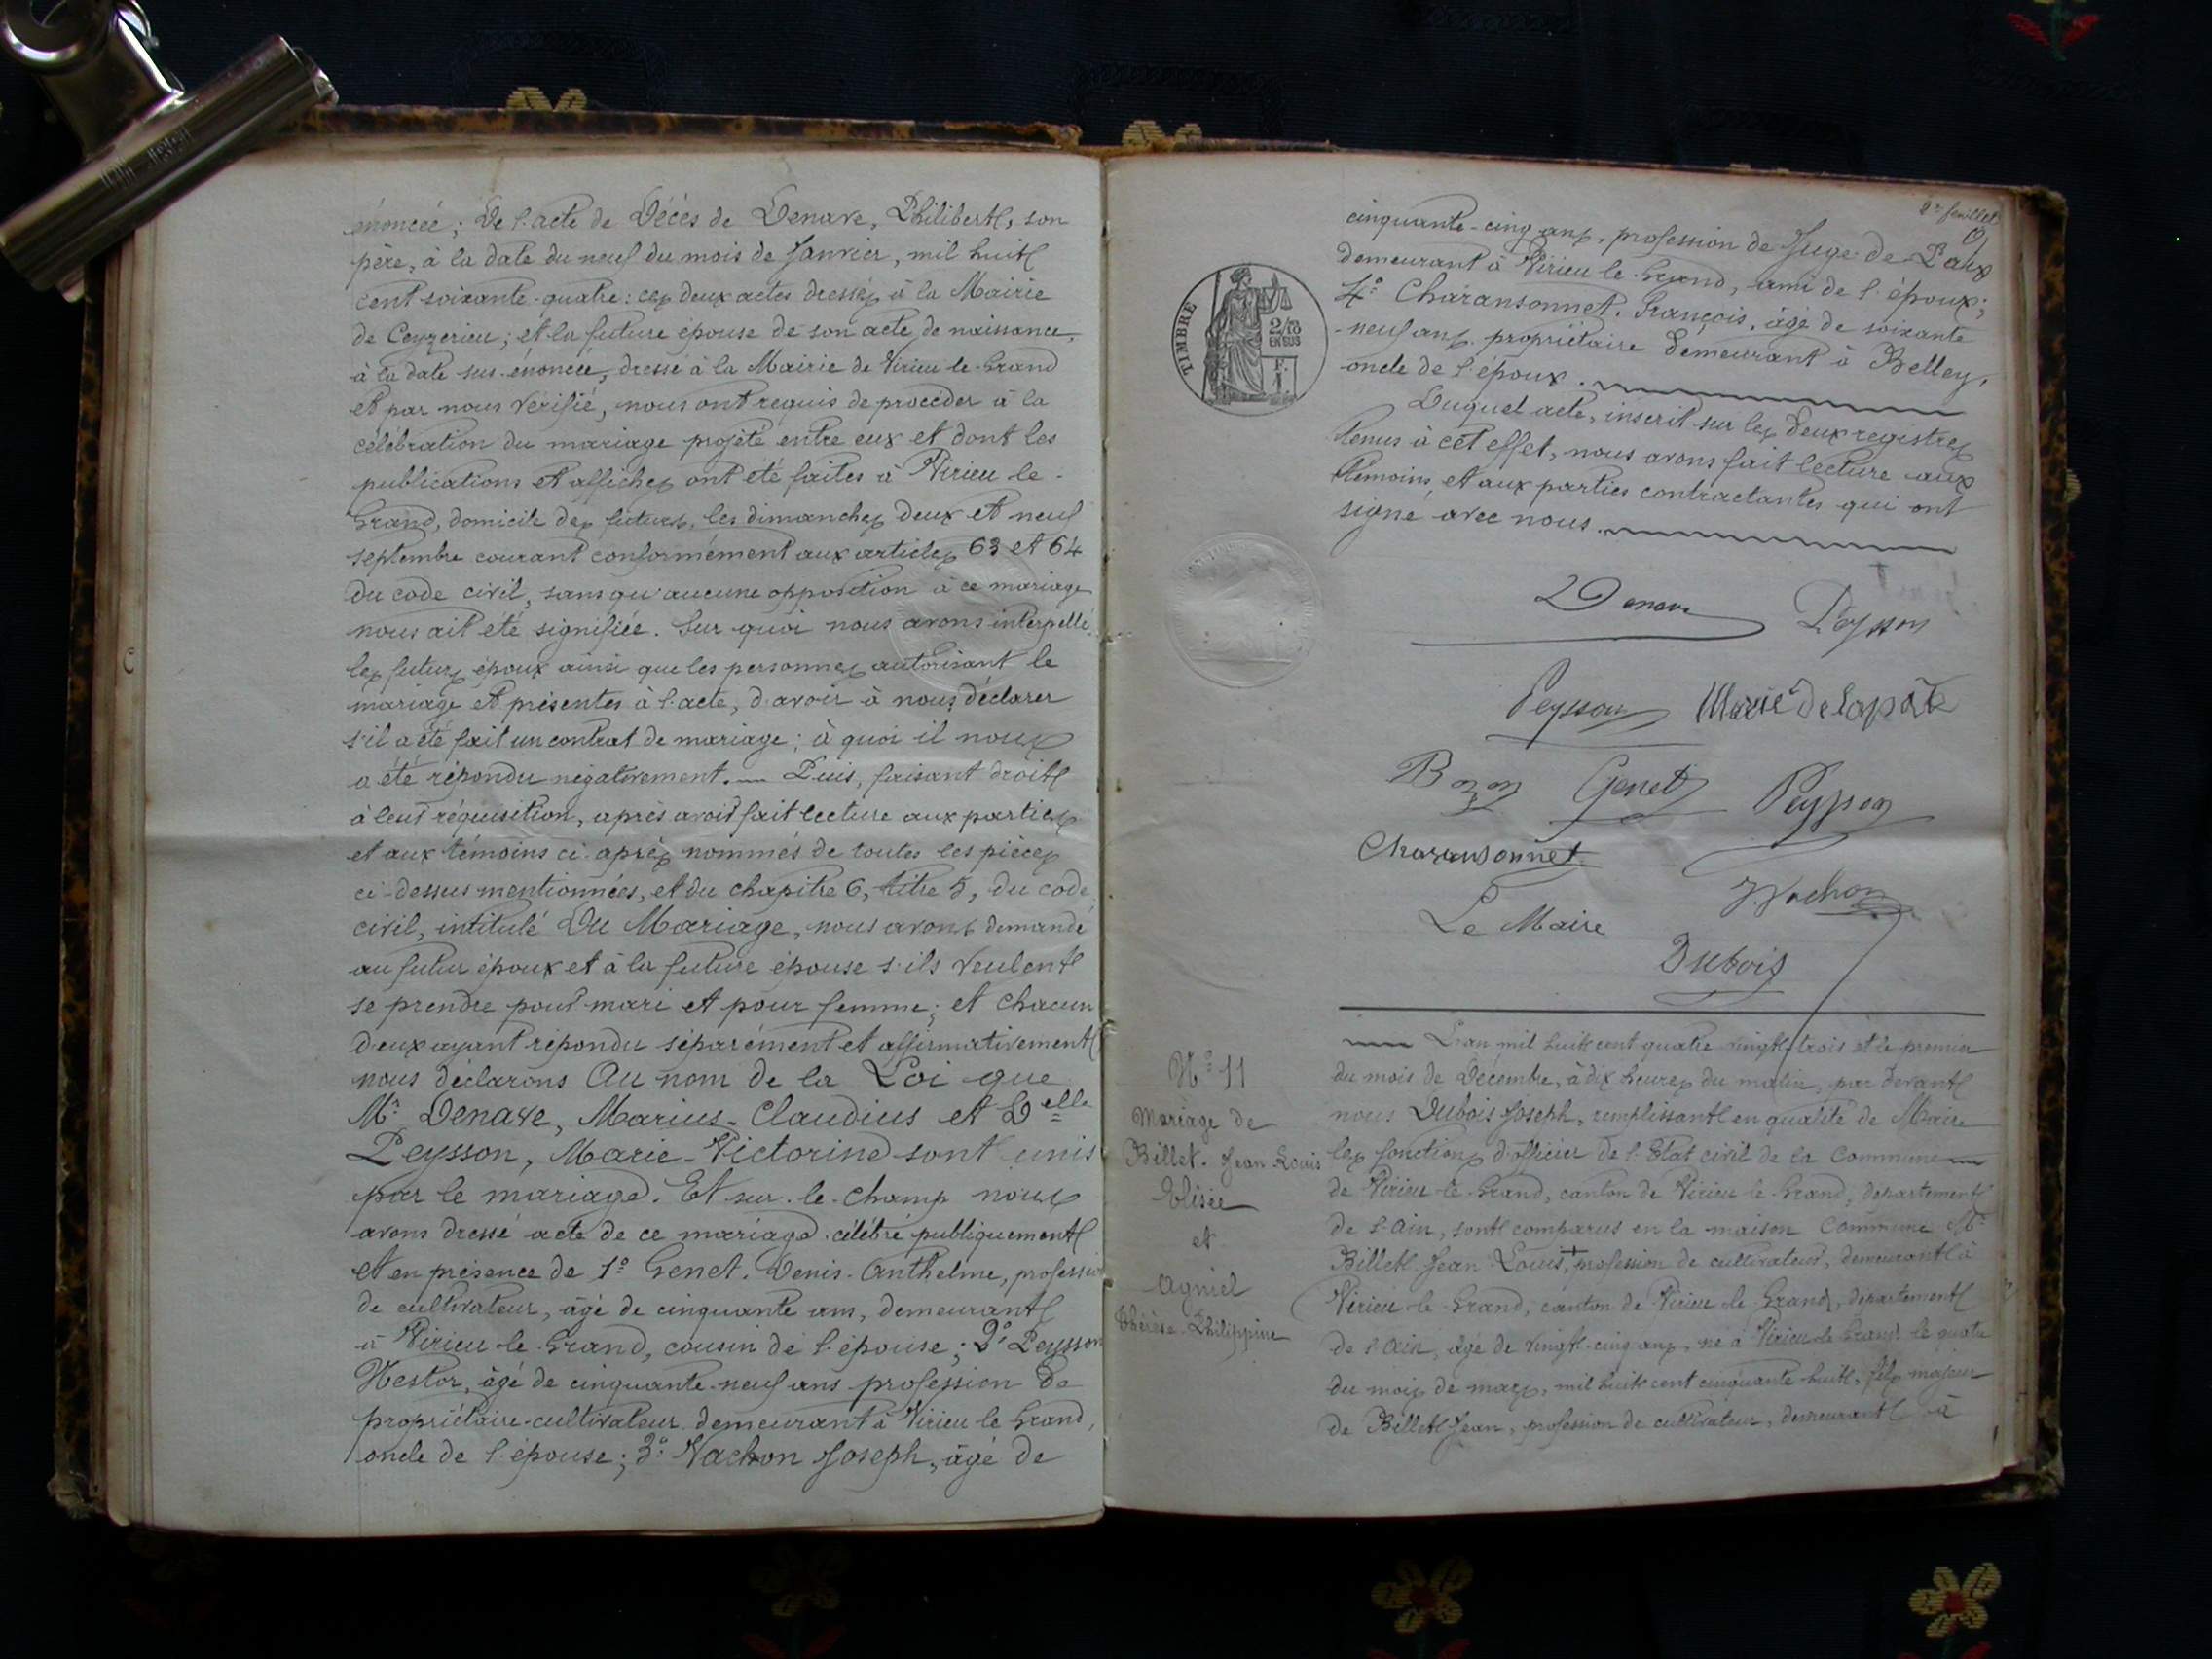 énoncée; De l'acte de Décès de Denave, Philibert, son
père, à la date du neuf du mois de Janvier, mil huit
cent soixante-quatre: ces deux actes dressés à la Mairie
de Ceyzerieu; et la future épouse de son acte de naissance,
à la date sus-énoncée, dressé à la Mairie de Virieu-le-Grand
et par nous vérifié, nous ont requis de procéder à la
célébration du mariage projété entre eux et dont les
publications et affiches ont été faites à Virieu le-
Grand, domicile des futurs, les dimanches deux et neuf
septembre courant conformément aux articles 63 et 64
du code civil, sans qu'aucune opposition à ce mariage
nous ait été signifiée. Sur quoi nous avons interpellé
les futurs époux ainsi que les personnes autorisant le
mariage et présentes à l'acte, d'avoir à nous déclarer
s'il a été fait un contrat de mariage; à quoi il nous
a été répondu négativement. — Puis, faisant droit
à leur réquisition, après avoir fait lecture aux parties
et aux témoins ci-après nommés de toutes les pièces
ci-dessus mentionnées, et du chapitre 6, titre 5, du code
civil, intitulé Du Mariage, nous avons demandé
au futur époux et à la future épouse s'ils veulent
se prendre pour mari et pour femme; et chacun
d'eux ayant répondu séparément et affirmativement
nous déclarons Au nom de la Loi que
Mr. Denave, Marius-Claudius et Delle
Peysson, Marie-Victorine sont unis
par le mariage. Et sur-le-champ nous
avons dressé acte de ce mariage célébré publiquement
et en présence de 1° Genet. Denis-Anthelme, profession
de cultivateur, âgé de cinquante ans, demeurant
à Virieu-le-Grand, cousin de l'épouse; 2° Peysson
Nestor, âgé de cinquante-neuf ans profession de
propriétaire-cultivateur demeurant à Virieu le Grand,
oncle de l'épouse; 3° Vachon Joseph, âgé de
2e feuillet
cinquante-cinq ans, profession de Juge de Paix
demeurant à Virieu le Grand, ami de l'époux;
4° Charansonnet. François, âgé de soixante
-neuf ans. propriétaire demeurant à Belley,
oncle de l'époux.
Duquel acte, inscrit sur les deux registres
tenus à cet effet, nous avons fait lecture aux
témoins, et aux parties contractantes qui ont
signé avec nous.
TIMBRE
2/10
EN SUS
Denave Peysson
Peysson Marie Delaporte
Bozon Genet Peysson
Charansonnet
J. Vachon
Le Maire
Dubois
N° 11
Mariage de
Billet. Jean Louis
Elisée
et
Agniel
Thérèse Philippine
L'an mil huit cent quatre vingt-trois et le premier
du mois de Décembre, à dix heures du matin, par devant
nous Dubois Joseph, remplissant en qualité de Maire
les fonctions d'officier de l'Etat civil de la Commune
de Virieu-le-Grand, canton de Virieu-le-Grand, département
de l'Ain, sont comparus en la maison Commune Mr.
Billet Jean Louis +, profession de cultivateur, demeurant à
Virieu-le-Grand, canton de Virieu le Grand, département
de l'Ain, âgé de vingt-cinq ans, né à Virieu le Grand le quatre
du mois de mars, mil huit cent cinquante-huit, fils majeur
de Billet Jean, profession de cultivateur, demeurant à